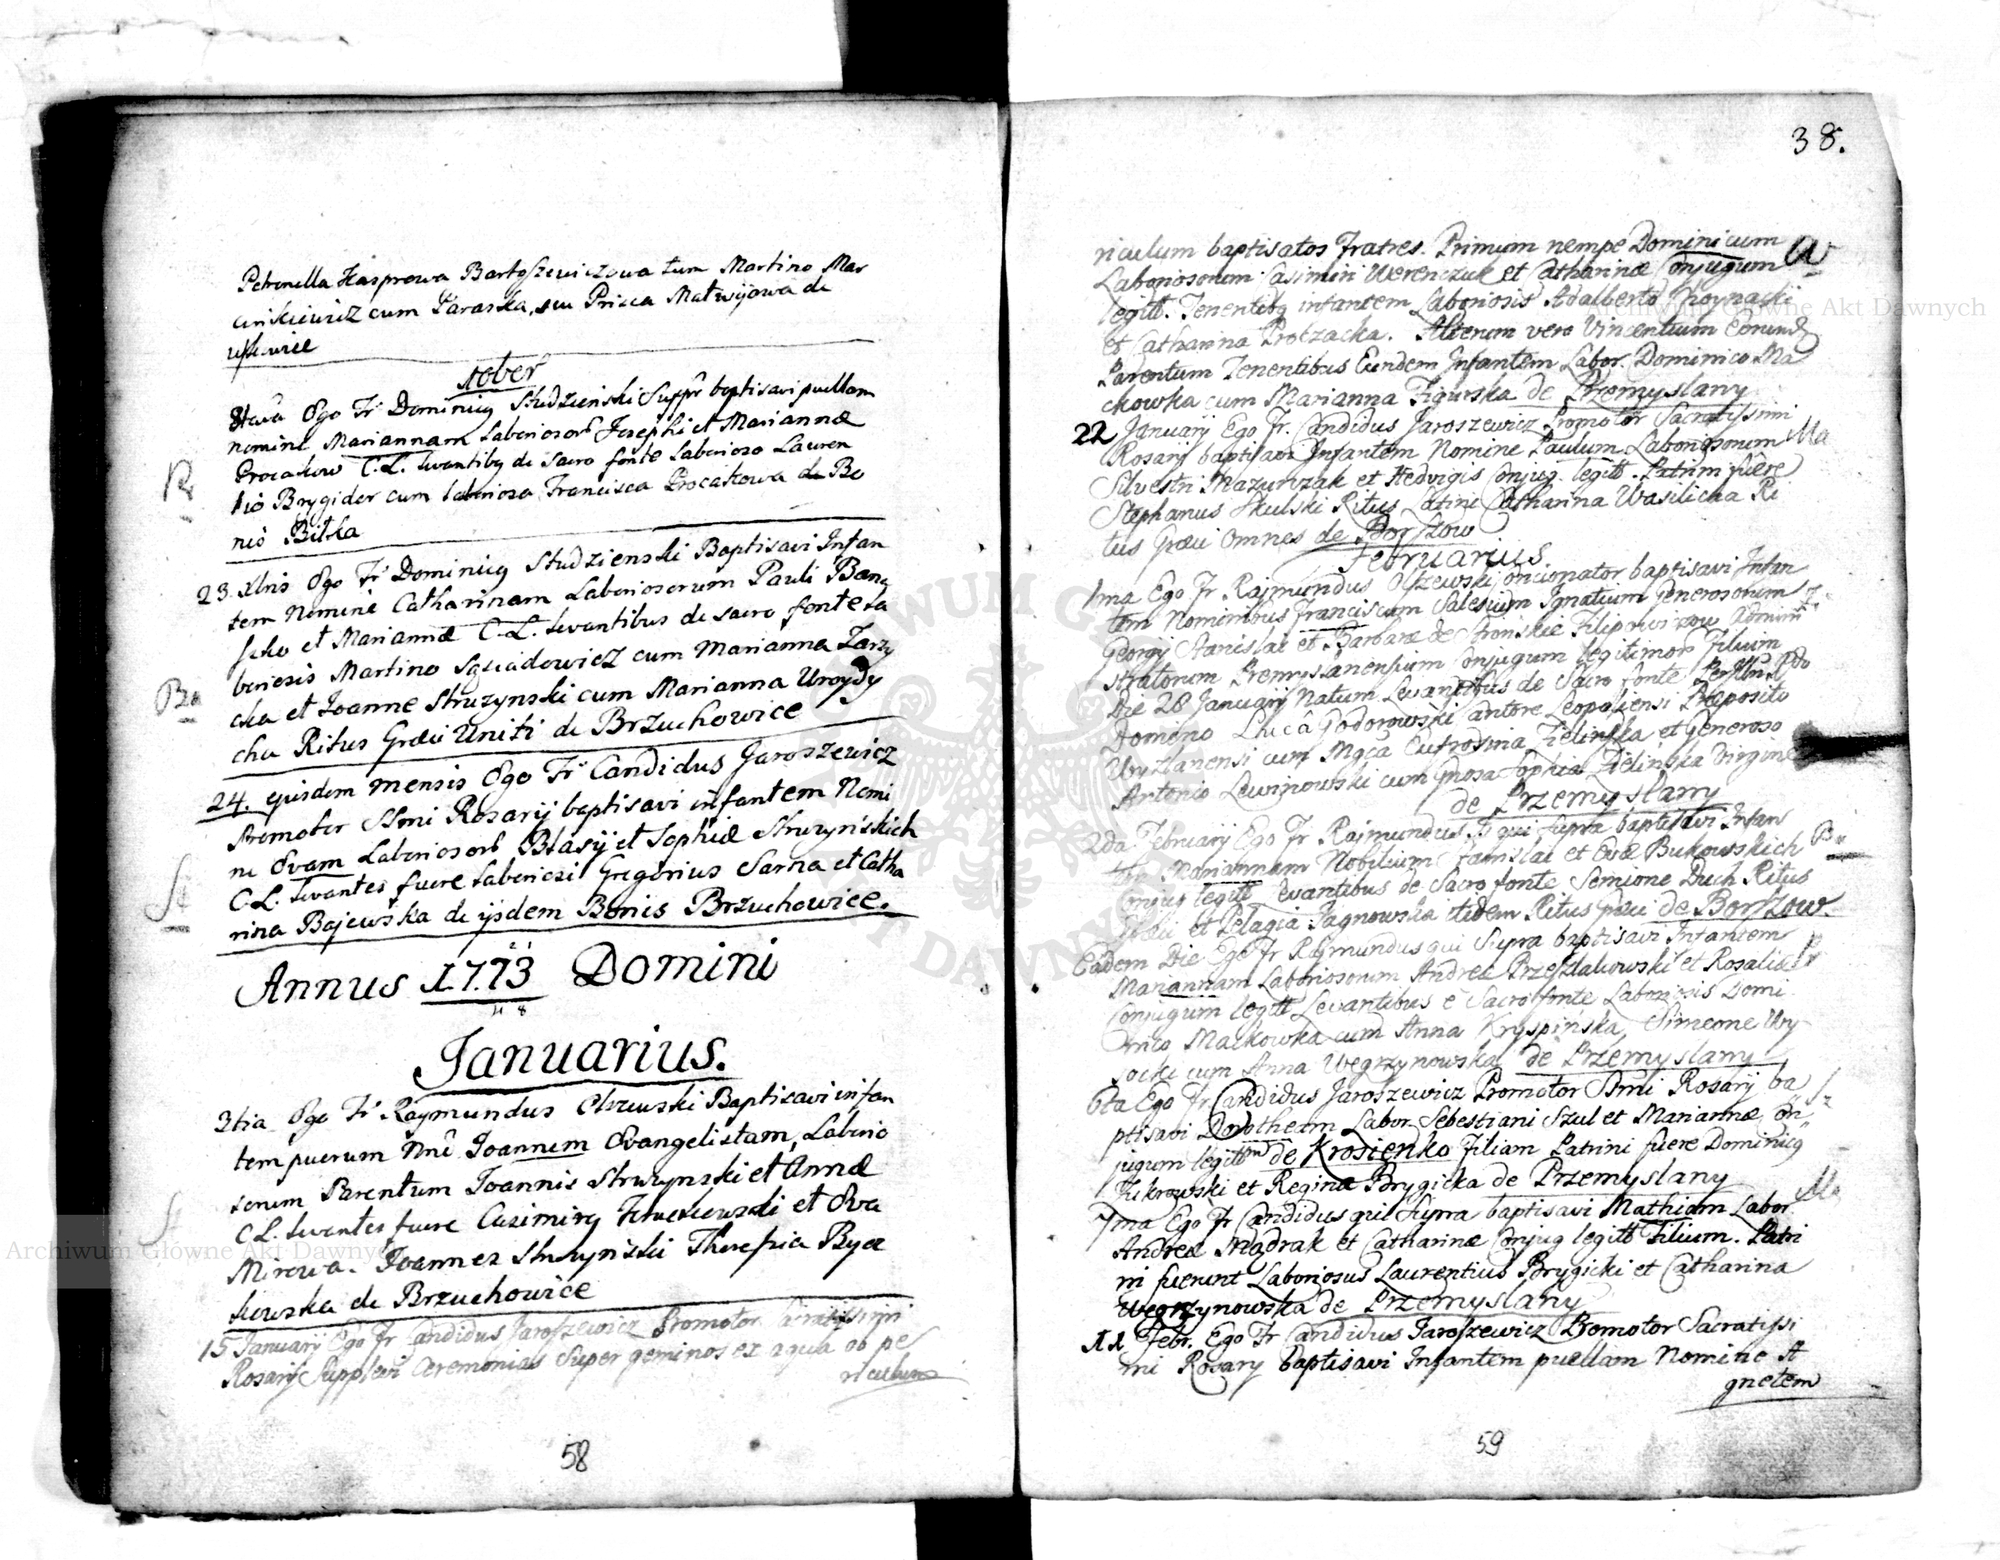 Petronella Kasprowa Bartoszewiczowa tum Martino Mar
cinkiewicz cum Paraska, seu Prisca Matwijowa de
Xober
Ego Fr. Dominicq Studzienski Suppr baptisavi puellam
nomine Mariannam Laboriosorũ Josephi et Mariannæ
Procakow C. L. levantibq de sacro fonte laborioso Lauren
tio Brygider cum laboriosa Francisca Procakowa de Bo
nis Bitka
Pr
23. Xbris Ego Fr. Dominicq Studzienski Baptisavi Infan
tem Nomine Catharinam Laboriosorum Pauli Bana
szko et Mariannæ C. L. levantibus de sacro fonte la
boriosis Martino Sąsiadowicz cum Marianna Zarzy
cka et Joanne Struzynski cum Marianna
cha Ritus Græci Uniti de Brzuchowice
Ba
24. ejusdem mensis Ego Fr. Candidus Jaroszewicz
Promotor SSmi Rosarij baptisavi infantem Nomi
ne Evam Laboriosorũ Blasij et Sophiæ Struzyńskich
C. L. levantes fuere laboriosi Gregorius Sarna et Catha
rina Bajewska de ijsdem Bonis Brzuchowice.
St
Annus 1773 Domini
Januarius.
3tia Ego Fr. Raymundus Olszewski Baptisavi infan
tem puerum Nnẽ Joannem Evangelistam, Laborio
sorum Parentum Joannis Struzynski et Annæ
C. L. levantes fuere Casimirq et Eva
Mirowa. Joannes Struzyński Theressia Bya
kowska de Brzuchowice
St
15 Januarij Ego Fr Candidus Jaroszewicz Promotor Sacratissimi
Rosarij Supplevi Ceremonias super geminos ex aqua ob pe
riculum
58
38.
riculum baptisatos Fratres. Primum nempe Dominicum
Laboriosorum Casimiri Werenczuk et Catharinæ Conjugum
legitt. Tenentibq infantem Laboriosis Adalberto Choynacki
et Catharina Proczacka. Alterum vero Vincentium Eorundẽ
Parentum Tenentibus Eundem Infantem Labor. Dominico Ma
ckowka cum Marianna Figurska de Przemyslany
W
22 Januarij Ego Fr. Candidus Jaroszewicz Promotor Sacratissimi
Rosarij baptisavi Infantem Nomine Paulum Laboriosorum
Silvestri Mazurczak et Hedvigis Conjug. legitt. Patrini fuere
Stephanus Skulski Ritus Latini Catharina Wasilicha Ri
tus Græci Omnes de Borszow
Ma
Februarius
1ma Ego Fr Rajmundus Olszewski Concionator baptisavi Infan
tem Nominibus Franciscum Salesium Ignatium Generosorum
Georgij Stanislai et Barbaræ de Strońskie Filipowiczow Admini
stratorum Premyslanensium Conjugum legitimor Filium
Die 28 Januarij Natum Levantibus de Sacro fonte
Domino Luca Podorowski Cantore Leopoliensi Præposito
cum Mgca Eufrosina Zielinska et Generoso
Antonio Lewinowski cum Gnosa Sophia Zielińska Virgine
de Przemyslany
2da Februarij Ego Fr Rajmundus qui supra baptisavi Infan
tem Mariannam Nobilium Stanislai et Evæ Bukowskich
Conjug legitt Levantibus de Sacro fonte Semione Duch Ritus
Græci et Pelagia Pagnowska itidem Ritus Græci de Borszow.
Bu
Eadem Die Ego Fr Rajmundus qui supra baptisavi Infantem
Mariannam Laboriosorum Andreæ Przeszlakowski et Rosaliæ
Conjugum legitt Levantibus e Sacro fonte Laboriosis Domi
nico Mackowka cum Anna Kryspińska, Simeone Wy
socki cum Anna Węgrzynowska de Przemyslany
Pr
6ta Ego Fr Candidus Jaroszewicz Promotor SSmi Rosarij ba
ptisavi Dorotheam Labor. Sebestiani Szul et Mariannæ Con
jugum legittm de Krosienko Filiam Patrini fuere Dominicq
Zukrowski et Regina Brygicka de Przemyslany
7ma Ego Fr Candidus qui supra baptisavi Mathiam Labor.
Andreæ Mądrak et Catharinæ Conjug legitt Filium. Patri
ni fuerunt Laboriosus Laurentius Brygicki et Catharina
Węgrzynowska de Przemyslany
Ma
11 Febr. Ego Fr Candidus Jaroszewicz Promotor Sacratissi
mi Rosary baptisavi Infantem puellam Nomine A
gnetem
59
Archiwum Główne Akt Dawnych
Archiwum Główne Akt Dawnych
ARCHIWUM GŁÓWNE AKT DAWNYCH